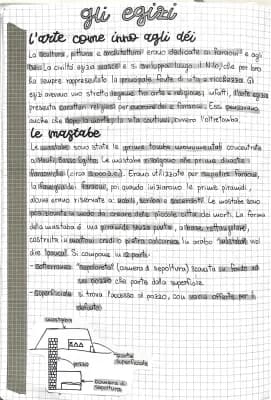 gli egizi
L'arte come inno agli dèi
La scultura, pittura e architettura erano dedicate ai faraoni e agli
Dei. La civiltà egizia nasce e si sviluppa lungo il Nilo, che per loro
ha sempre rappresentato la principale fonte di vita e ricchezza. Gli
egizi avevano uno stretto legame tra arte e religione; infatti, l'arte egizia
presenta caratteri religiosi per
e faraoni. Essi pensavano
anche che dopo la morte la vita continui, ovvero l'oltretomba.
le mastabe
Le mastabe sono state le prime tombe monumentali concentrate
a Menfi, Basso Egitto. Le mastabe risalgono alle prime dinastie
faraoniche (circa a.C.). Erano utilizzate per seppellire faraoni,
la famiglia dei faraoni, poi quando iniziarono le prime piramidi,
alcune erano riservate a nobili, scribi e sacerdoti. Le mastabe sono
poi in modo da creare delle piccole città dei morti. La forma
della mastaba è una piramide senza punta, a base rettangolare,
costruita in mattoni crudi o pietra calcarea. In arabo "mastaba" vuol
dire "panca". Si compone in 2 parti:
- sotterranea (camera di sepoltura) scavata sul fondo di
un pozzo che parte dalla superficie.
- superficiale: si trova l'accesso al pozzo, con varie offerte per il
defunto.
mastaba
parte
superficiale
pozzo
camera di
sepoltura